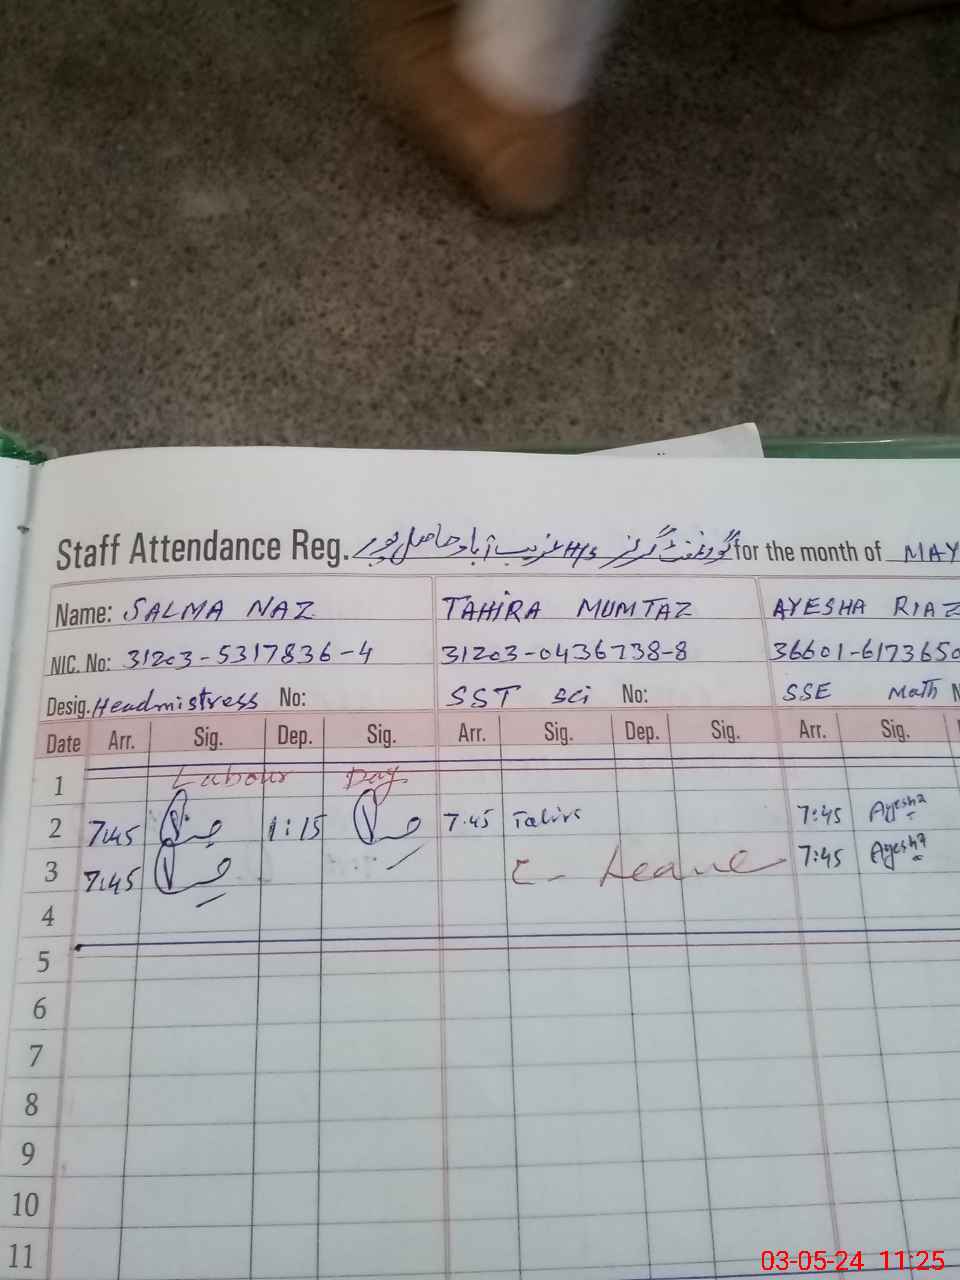 Staff Attendance Reg. گورنمنٹ گرلز H/S عزیب آباد حاصل پور for the month of MAY
Name: SALMA NAZ TAHIRA MUMTAZ AYESHA RIAZ
NIC. No: 31203-5317836-4 31203-0436738-8 36601-6173650
Desig. Headmistress No: SST Sci No: SSE Math N
Date Arr. Sig. Dep. Sig. Arr. Sig. Dep. Sig. Arr. Sig.
1 Labour Day
2 7:45 1:15 7:45 7:45 Ayesha
3 7:45 C- Leave 7:45 Ayesha
4
5
6
7
8
9
10
11
03-05-24 11:25